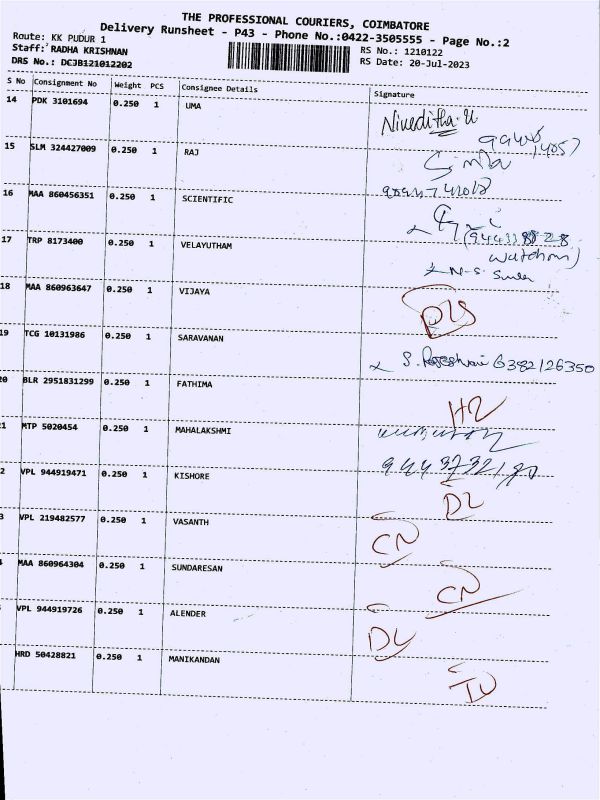 THE PROFESSIONAL COURIERS, COIMBATORE
Delivery Runsheet - P43 - Phone No.:0422-3505555 - Page No.:2
Route: KK PUDUR 1
Staff: RADHA KRISHNAN
DRS No.: DCJB121012202
RS No.: 1210122
RS Date: 20-Jul-2023
S No Consignment No Weight PCS Consignee Details Signature
14 PDK 3101694 0.250 1 UMA Niveditha.U
15 SLM 324427009 0.250 1 RAJ
16 MAA 860456351 0.250 1 SCIENTIFIC
17 TRP 8173400 0.250 1 VELAYUTHAM
18 MAA 860963647 0.250 1 VIJAYA
19 TCG 10131986 0.250 1 SARAVANAN 6382126350
20 BLR 2951831299 0.250 1 FATHIMA
21 MTP 5020454 0.250 1 MAHALAKSHMI
2 VPL 944919471 0.250 1 KISHORE DL
3 VPL 219482577 0.250 1 VASANTH CN
4 MAA 860964304 0.250 1 SUNDARESAN CN
VPL 944919726 0.250 1 ALENDER DL
HRD 50428821 0.250 1 MANIKANDAN